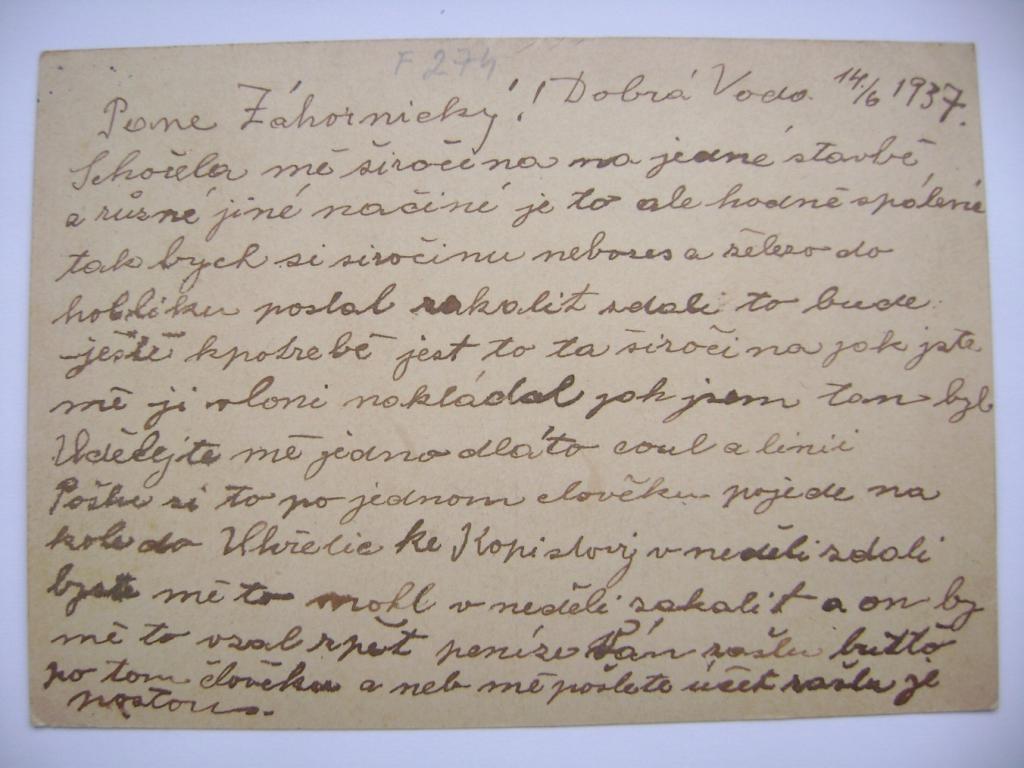 F 274
Pane Záhornický! Dobrá Voda 14/6 1937.
Schořela mě širočina na jedné stavbě
a různé jiné náčiné je to ale hodně spálené
tak bych si siročinu nebozes a železo do
hoblíku poslal zakalit zdali to bude
ještě kpotřebě jest to ta širočina jak jste
mě ji vloni nakládal jak jsem tam byl
Udělejte mě jedno dláto coul a linii
Pošlu si to po jednom člověku pojede na
kole do Uhřelic ke Kopistovj v neděli zdali
byste mě to mohl v neděli zakalit a on by
mě to vzal zpět peníze Vám zašlu buttó
po tom člověku a neb mě pošlete účet zašlu je
postou.